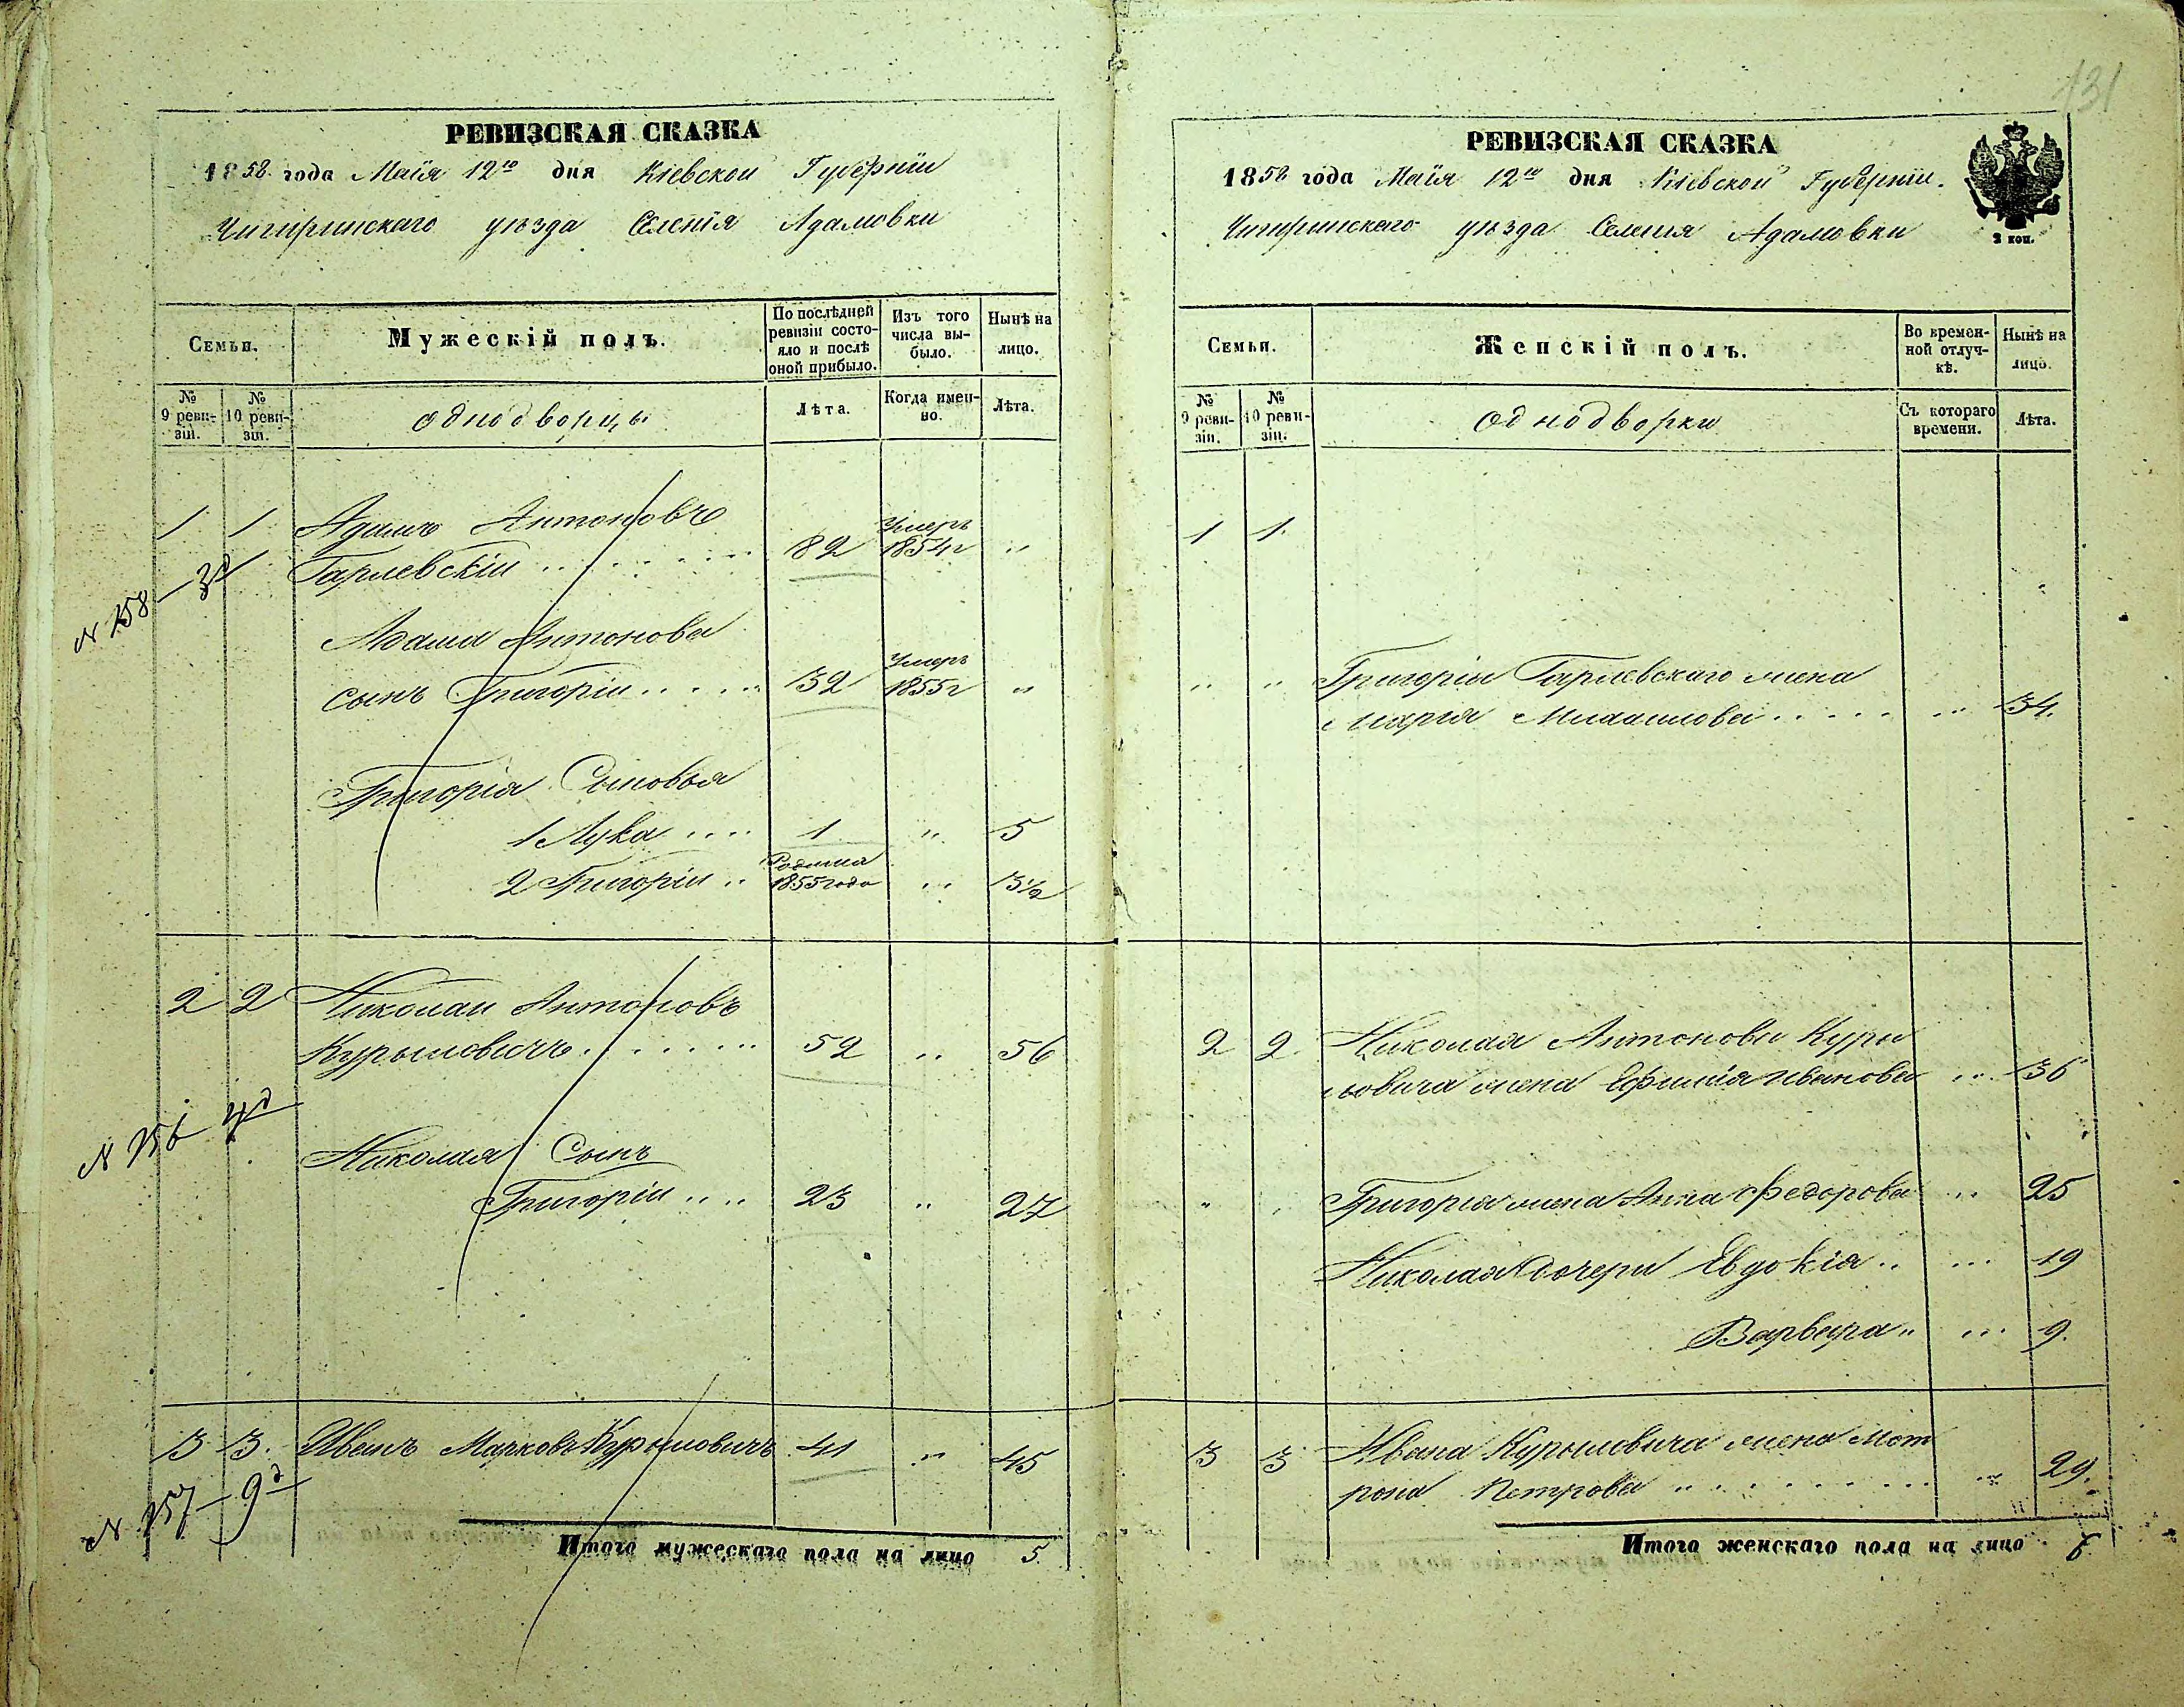 131
РЕВИЗСКАЯ СКАЗКА
1858 года Маія 12го дня Кіевской Губерніи
Чигиринскаго уѣзда Селенія Адамовки
Семьи.
Мужескій полъ.
По послѣдней ревизіи состояло и послѣ оной прибыло.
Изъ того числа выбыло.
Нынѣ на лицо.
№ 9 ревизіи.
№ 10 ревизіи.
однодворцы
Лѣта.
Когда именно.
Лѣта.
1 1 Адамъ Антоновъ
Гарлевскій 82 Умеръ 1854г "
N 158 — 3д
Адама Антонова
сынъ Григорій 32 Умеръ 1855г "
Григорія Сыновья
1 Лука 1 " 5
2 Григорій Родился 1855 года " 3½
2 2 Николай Антоновъ
Курыловичъ 52 " 56
N 156 4д
Николая Сынъ
Григорій 23 " 27
3 3. Иванъ Марковъ Курыловичъ 41 " 45
N 157 — 9д
Итого мужескаго пола на лицо 5.
РЕВИЗСКАЯ СКАЗКА
1858 года Маія 12го дня Кіевской Губерніи.
Чигиринскаго уѣзда Селенія Адамовки
2 коп.
Семьи.
Женскій полъ.
Во временной отлучкѣ.
Нынѣ на лицо.
№ 9 ревизіи.
№ 10 ревизіи.
однодворки
Съ котораго времени.
Лѣта.
1 1.
" " Григорія Гарлевскаго жена
Марія " 34.
2 2. Николая Антонова Куры
ловича жена Ефимія Иванова " 36
" Григорія жена Анна Федорова " 25
Николая дочери Евдокія " 19
Варвара " 9.
3 3 Ивана Курыловича жена Мот
рона Петрова " 29.
Итого женскаго пола на лицо 6